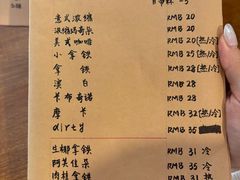 意式浓缩 RMB 20
浓缩玛奇朵 RMB 20
美式咖啡 RMB 20[热/冷]
小拿铁 RMB 25
拿铁 RMB 28[热/冷]
澳白 RMB 28
卡布奇诺 RMB 28
摩卡 RMB 32[热/冷]
dirty RMB 35
生椰拿铁 RMB 31 冷
阿芙佳朵 RMB 35 冷
肉桂拿铁 RMB 31 热